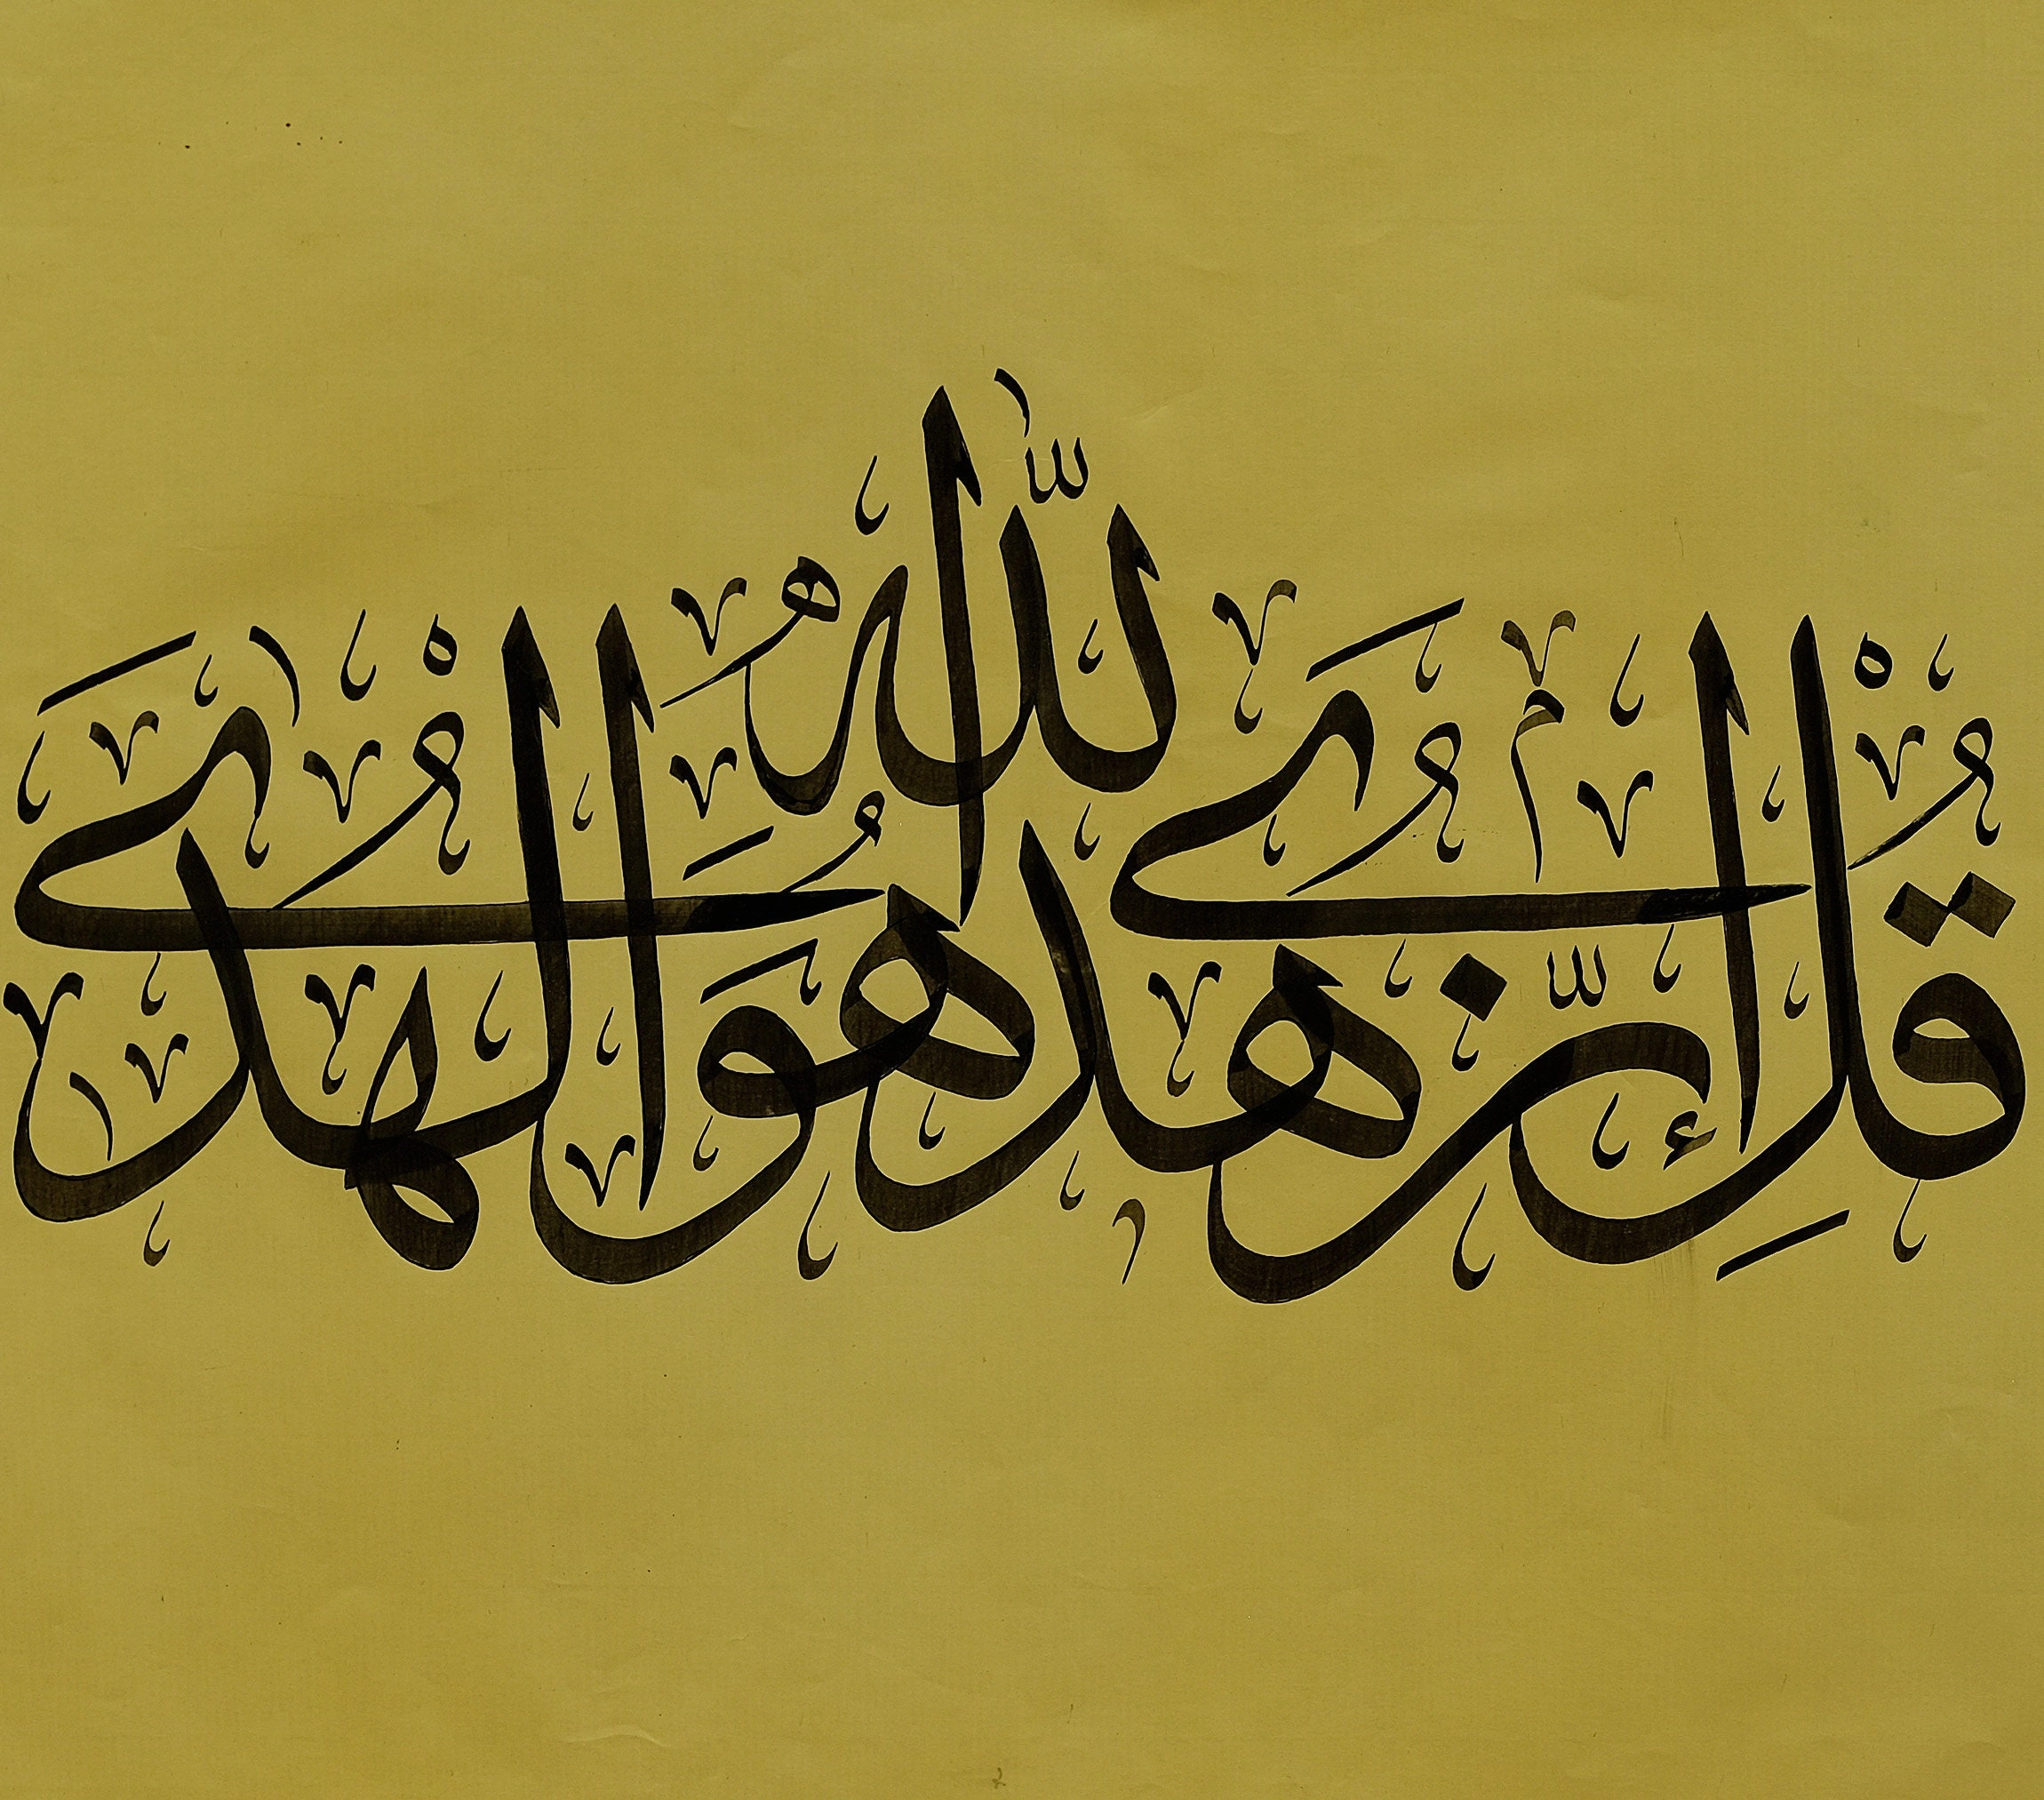 قُلْ إِنَّ هُدَى اللّٰهِ هُوَ الْهُدٰى